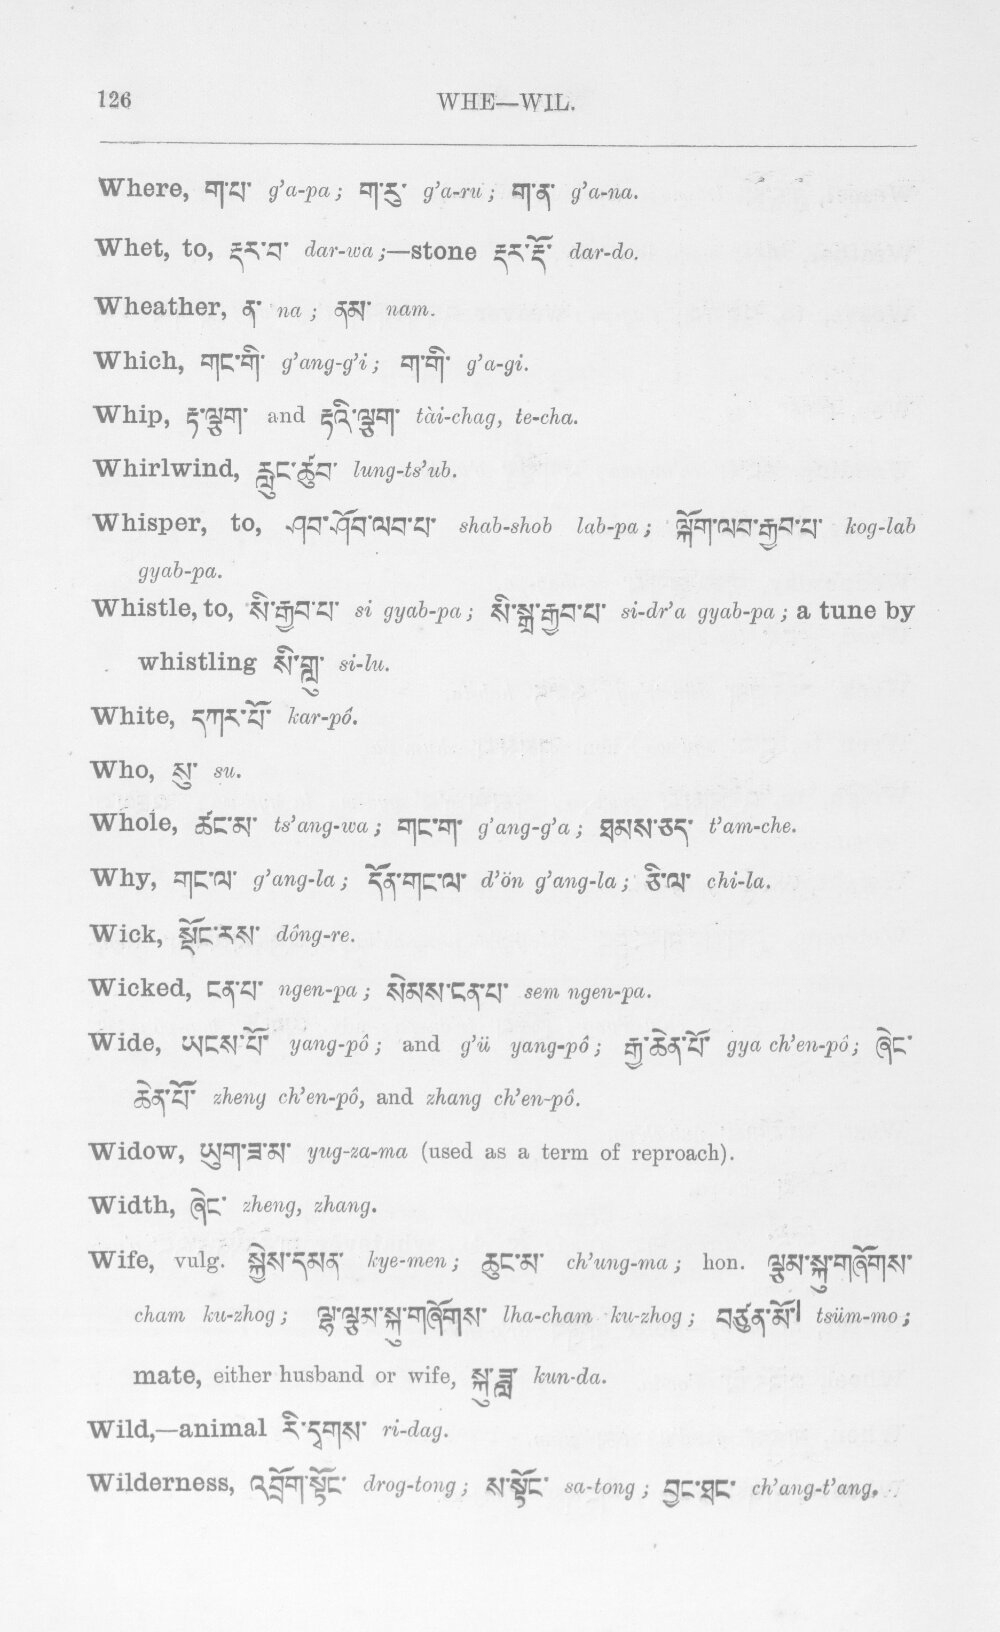 126 WHE—WIL.
Where, ག་པ་ g’a-pa; ག་རུ་ g’a-ru; ག་ན་ g’a-na.
Whet, to, རྡར་བ་ dar-wa;—stone རྡར་རྡོ་ dar-do.
Wheather, ན་ na; ནམ་ nam.
Which, གང་གི་ g’ang-g’i; ག་གི་ g’a-gi.
Whip, རྟ་ལྕག་ and རྟའི་ལྕག་ tài-chag, te-cha.
Whirlwind, རླུང་ཚུབ་ lung-ts’ub.
Whisper, to, ཤབ་ཤོབ་ལབ་པ་ shab-shob lab-pa; ལྐོག་ལབ་རྒྱབ་པ་ kog-lab
gyab-pa.
Whistle, to, སི་རྒྱབ་པ་ si gyab-pa; སི་སྒྲ་རྒྱབ་པ་ si-dr’a gyab-pa; a tune by
whistling སི་གླུ་ si-lu.
White, དཀར་པོ་ kar-pô.
Who, སུ་ su.
Whole, ཚང་མ་ ts’ang-wa; གང་ག་ g’ang-g’a; ཐམས་ཅད་ t’am-che.
Why, གང་ལ་ g’ang-la; དོན་གང་ལ་ d’ön g’ang-la; ཅི་ལ་ chi-la.
Wick, སྡོང་རས་ dông-re.
Wicked, ངན་པ་ ngen-pa; སེམས་ངན་པ་ sem ngen-pa.
Wide, ཡངས་པོ་ yang-pô; and g’ü yang-pô; རྒྱ་ཆེན་པོ་ gya ch’en-pô; ཞེང་
ཆེན་པོ་ zheng ch’en-pô, and zhang ch’en-pô.
Widow, ཡུག་ཟ་མ་ yug-za-ma (used as a term of reproach).
Width, ཞེང་ zheng, zhang.
Wife, vulg. སྐྱེས་དམན་ kye-men; ཆུང་མ་ ch’ung-ma; hon. ལྕམ་སྐུ་གཞོགས་
cham ku-zhog; ལྷ་ལྕམ་སྐུ་གཞོགས་ lha-cham ku-zhog; བཙུན་མོ། tsüm-mo;
mate, either husband or wife, སྐུ་ཟླ་ kun-da.
Wild,—animal རི་དྭགས་ ri-dag.
Wilderness, འབྲོག་སྟོང་ drog-tong; ས་སྟོང་ sa-tong; བྱང་ཐང་ ch’ang-t’ang.